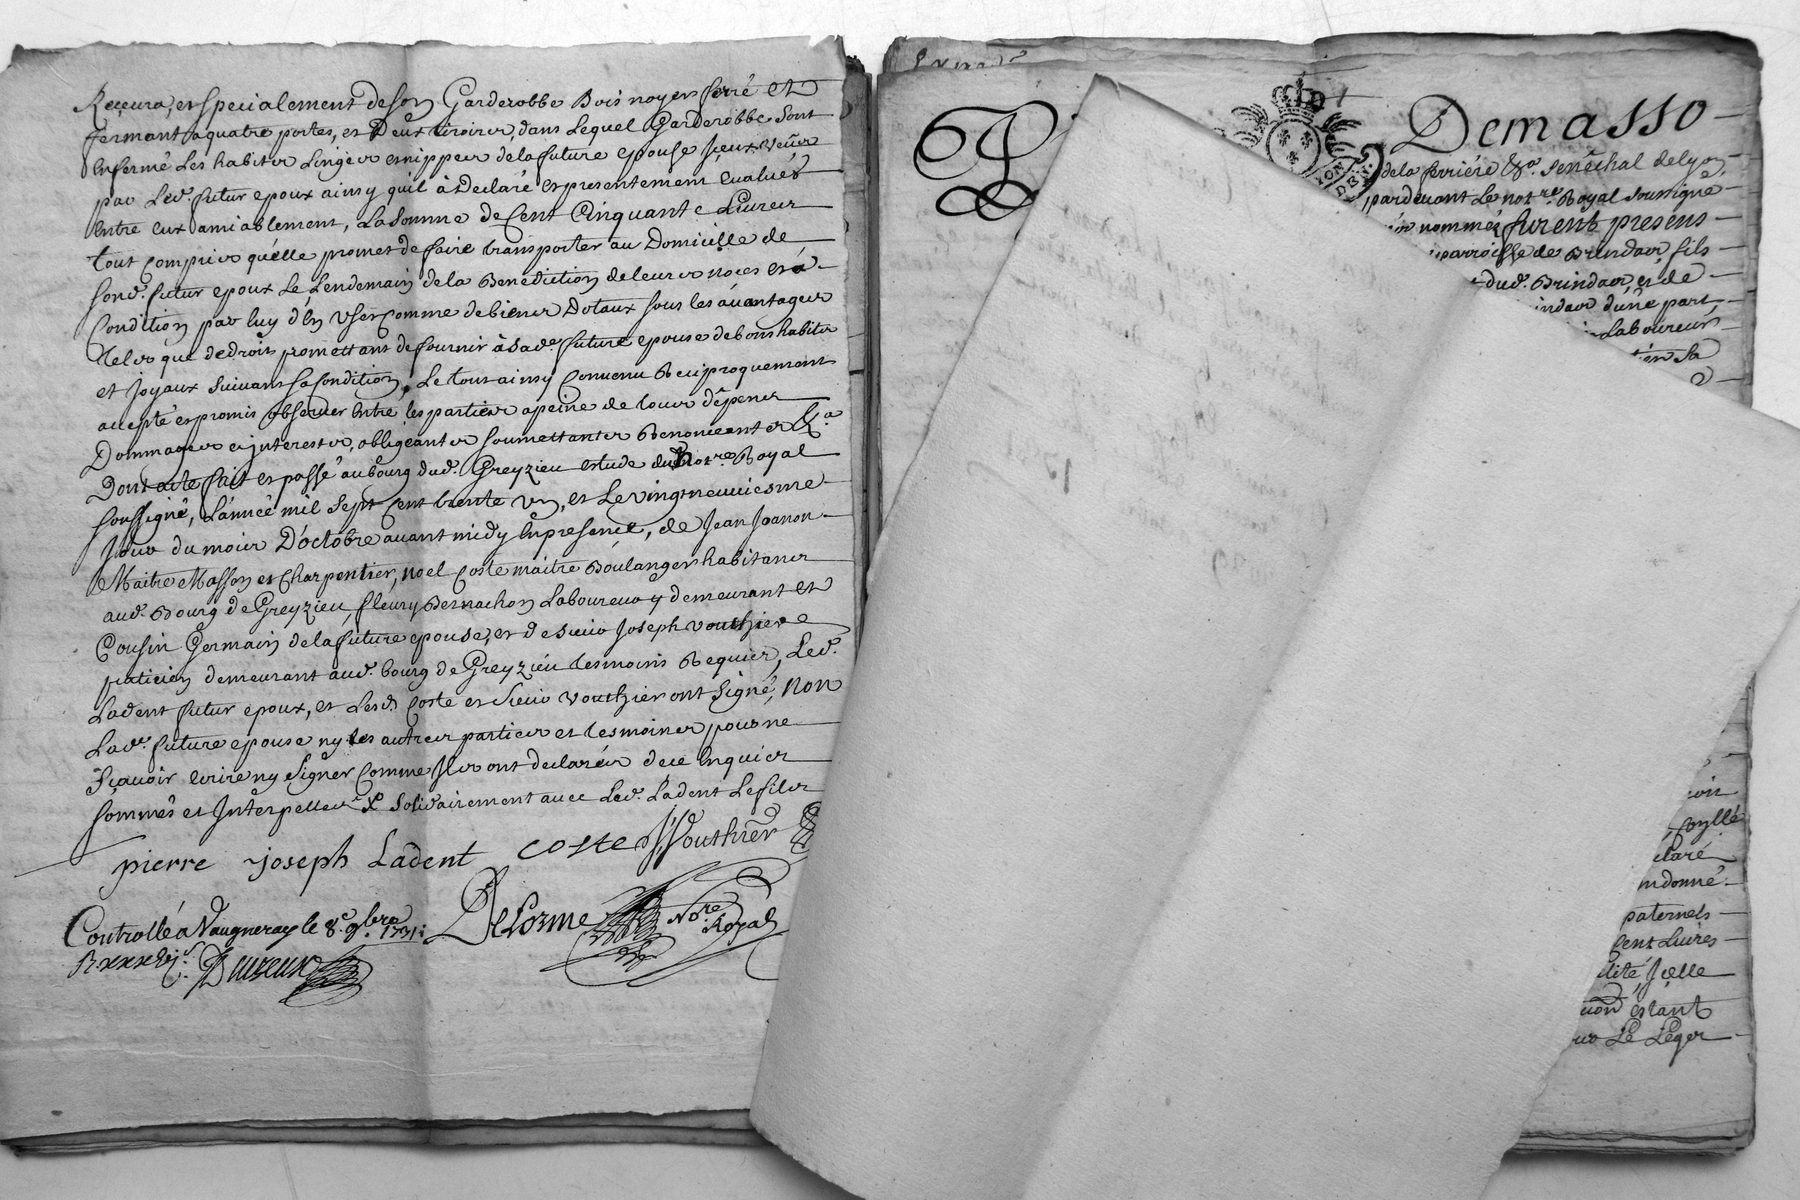 Receura, et specialement de son Garderobbe Bois noyer ferré et
fermant a quatre portes, et Deux tiroirs, dans Lequel Garderobbe sont
Enfermé Les habits Linges et nippes de la future epouse Jceux veües
par Led. futur epoux ainsy qu'il à Declaré et presentement evalués
Entre eux amiablement, La somme de Cent Cinquante Livres
tout Compris quelle promet de faire transporter au Domicille de
sond. futur epoux Le Lendemain de la Benediction de leurs noces et à
Condition par luy d'En User Comme de biens Dotaux sous les avantages
tels que de droit promettant de fournir à sade future epouse de bons habits
et Joyaux suivant sa Condition, Le tout ainsy Convenu Reciproquement
accepté et promis observer Entre les parties a peine de tous dépens
Dommages et jnterests, obligeants soumettants Renonceants &a.
Dont acte fait et passé au bourg dud. Greyzieu estude du Notre. Royal
soussigné, L'année mil sept Cent trente Un, et Le vingt neuviesme
Jour du mois D'octobre avant midy En presence, de Jean Joanon
Maitre Masson et Charpentier, noel Coste maitre Boulanger habitans
aud. Bourg de Greyzieu, fleury Bernachon Laboureur y demeurant et
Cousin Germain de la future epouse, et de sieur Joseph Vouthier
praticien demeurant aud. bourg de Greyzieu tesmoins Requis, Led.
Ladent futur epoux, et Lesd. Coste et Sieur Vouthier ont signé, Non
Lad. future epouse ny les autres parties et tesmoins pour ne
sçavoir Ecrire ny signer Comme Jls ont declarés de ce Enquis
sommés et Jnterpellés X solidairement avec Led. Ladent Le fils
pierre joseph Ladent coste Vouthier
Controllé a Vaugneray le 8e. 9bre 1731
Delorme Nore. Royal
Duzeur
Demasso
de la ferriére &a. senêchal de lyon
pardevant Le notre. Royal soussigné
nommés furent presens
parroisse de Brindas, fils
dud. Brindas, et de
indas d'une part,
Laboureur
sa
Coyllé
claré
ndonné
paternels
Cent Livres
lité, Jcelle
estant
Le Leger